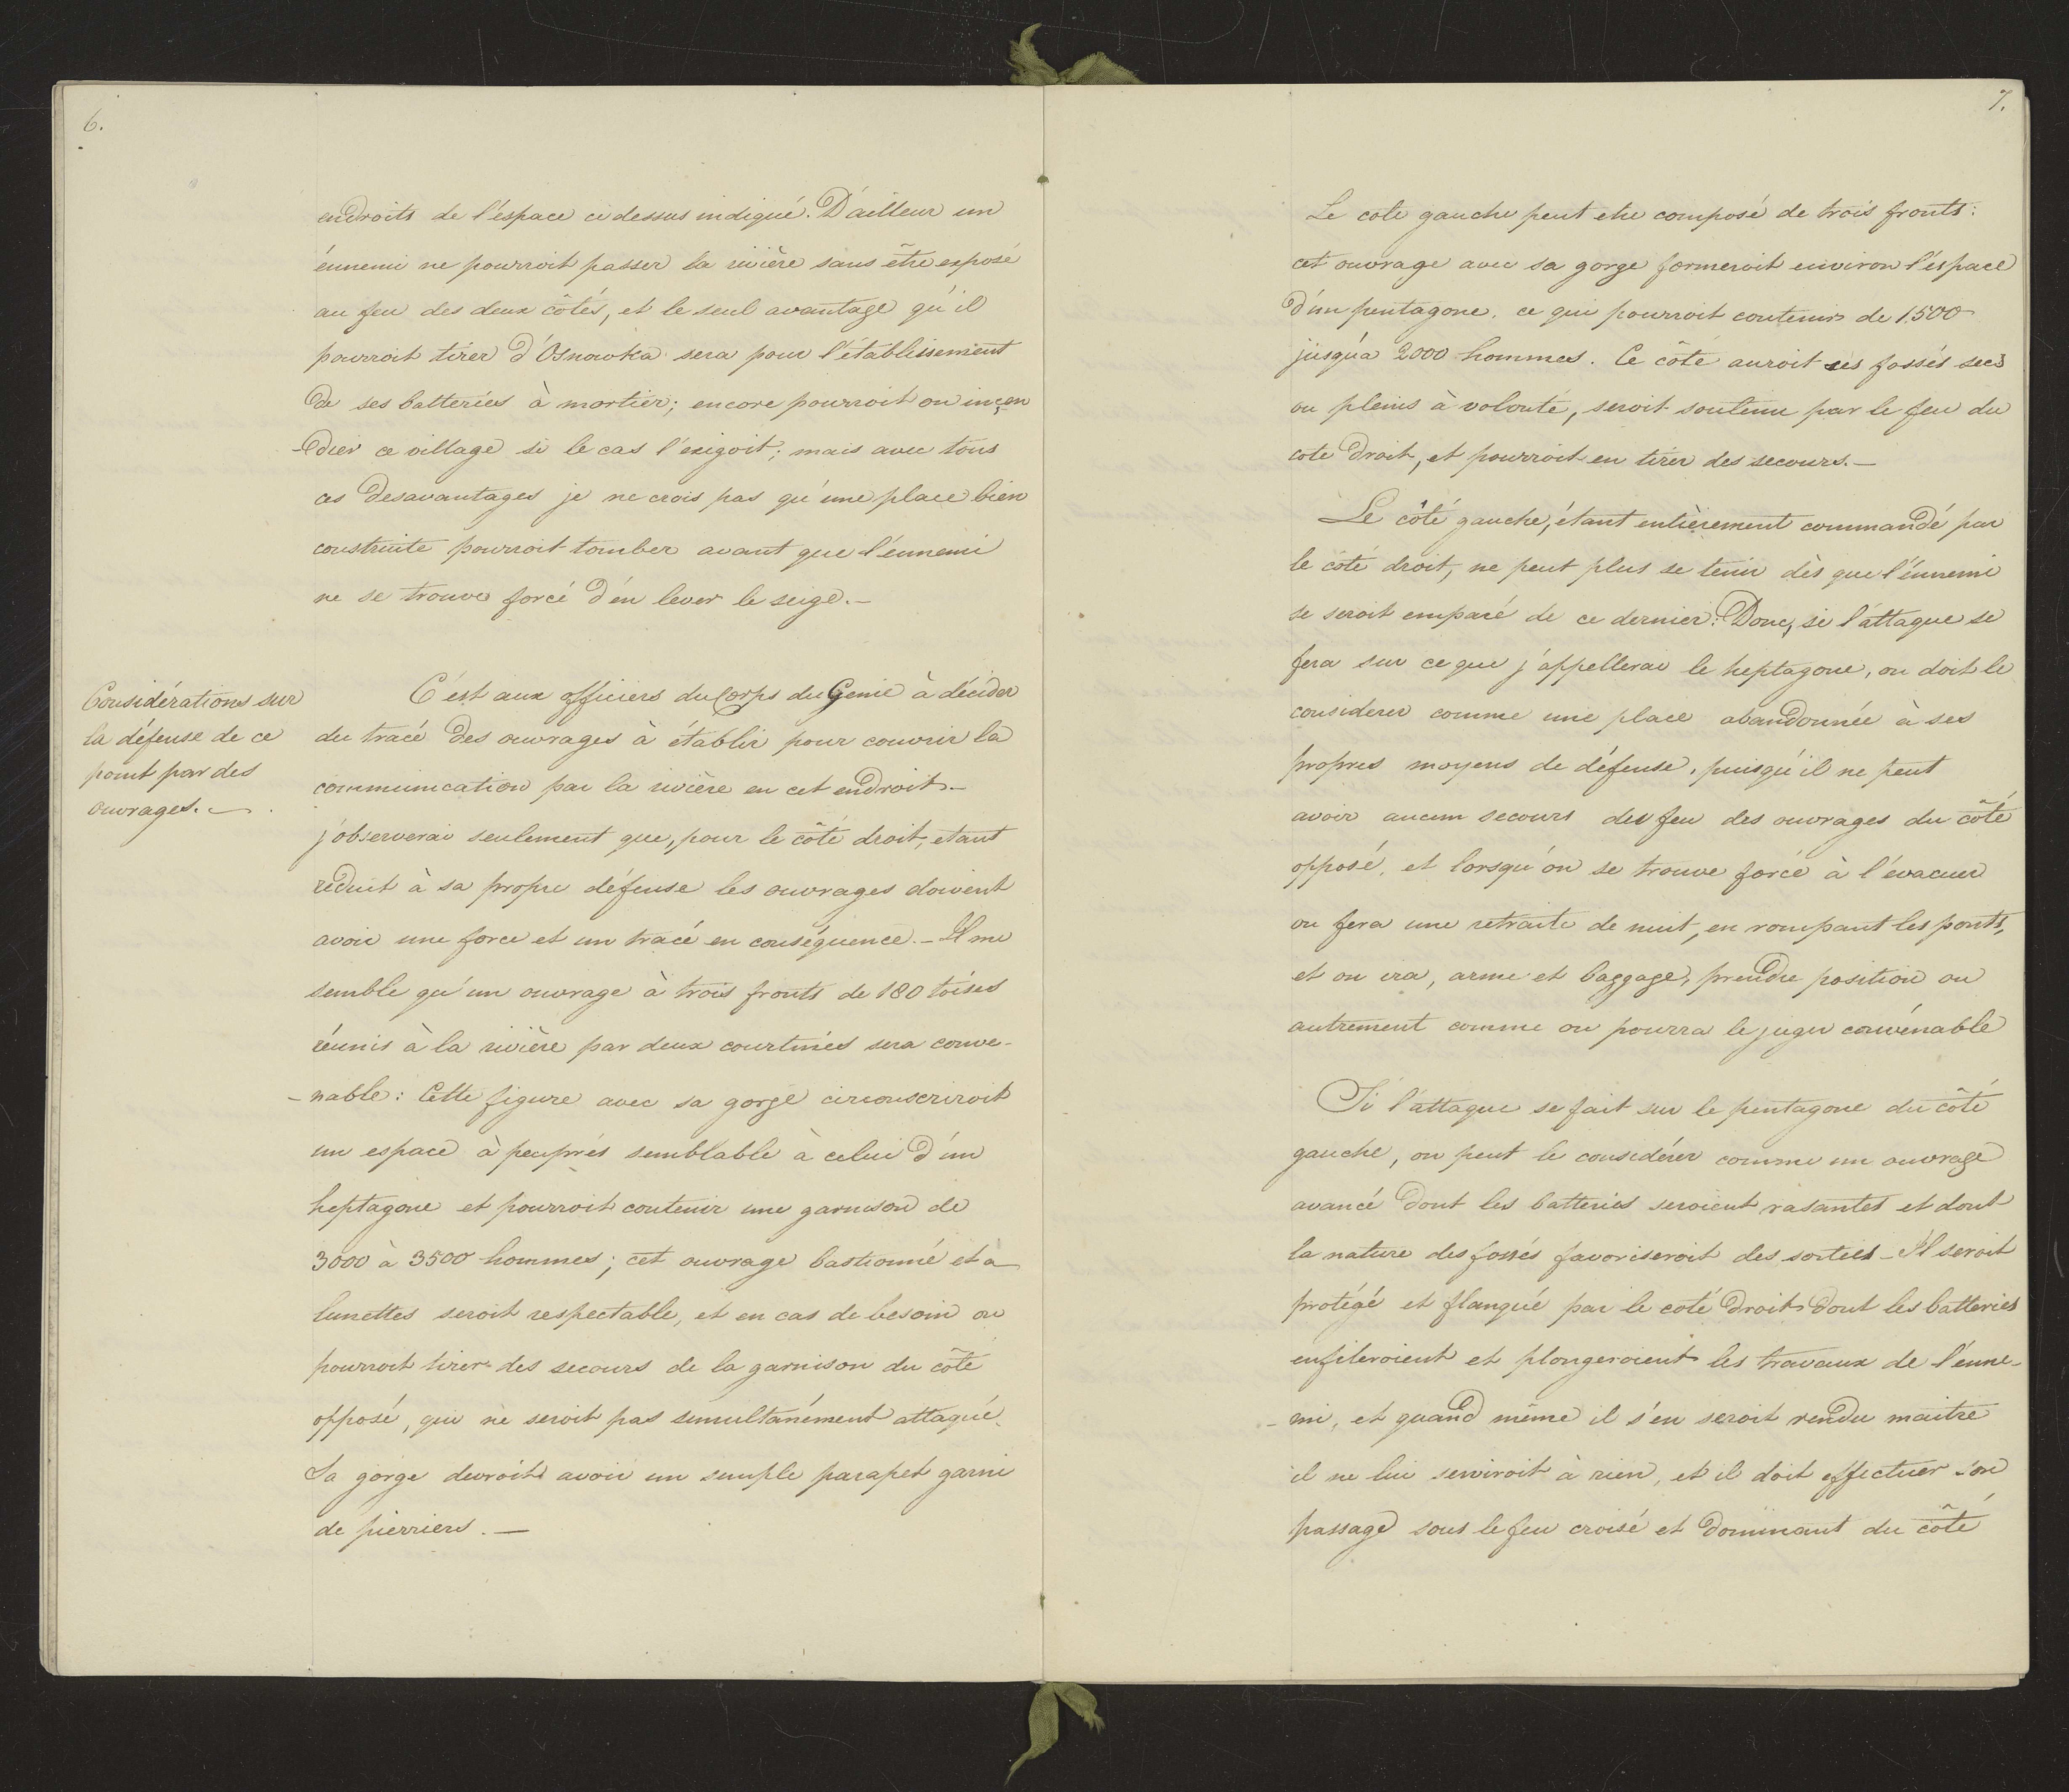 6.
endroits de l'éspace ci dessus indiqué. D'ailleur un
énnemi ne pourroit passer la rivière sans être exposé
au feu des deux côtés, et le seul avantage qu'il
pourroit tirer d'Osnowka sera pour l'établissement
de ses batteries à mortier; encore pourroit on incen
-dier ce village si le cas l'exigoit; mais avec tous
ces desavantages je ne crois pas qu'une place bien
construite pourroit tomber avant que l'énnemi
ne se trouve forcé d'en lever le seige.—
Considérations sur
la défense de ce
point par des
ouvrages.—
C'est aux officiers du Corps du Genie à décider
du tracé des ouvrages à établir pour couvrir la
communication par la rivière en cet endroit.—
j'observerai seulement que, pour le côté droit, etant
réduit à sa propre défense les ouvrages doivent
avoir une force et un tracé en conséquence.— Il me
semble qu'un ouvrage à trois fronts de 180 toises
réunis à la rivière par deux courtines sera conve-
-nable: Cette figure avec sa gorge circonscriroit
un espace à peuprés semblable à celui d'un
heptagone et pourroit contenir une garnison de
3000 à 3500 hommes; cet ouvrage bastionné et à
lunettes seroit respectable, et en cas de besoin on
pourroit tirer des secours de la garnison du côté
opposé, qui ne seroit pas simultanément attaqué.
Sa gorge devroit avoir un simple parapet garni
de pierriers.—
7.
Le coté gauche peut etre composé de trois fronts:
cet ouvrage avec sa gorge formeroit environ l'éspace
d'un pentagone. ce qui pourroit contenir de 1500
jusqu'a 2000 hommes. Ce côté auroit ses fossés secs
ou pleins à volonté, seroit soutenu par le feu du
coté droit, et pourroit en tirer des secours.—
Le côté gauche, étant entièrement commandé par
le côté droit, ne peut plus se tenir dès que l'énnemi
se seroit emparé de ce dernier: Donc, si l'attaque se
fera sur ce que j'appellerai le heptagone, on doit le
considerer comme une place abandonnée à ses
propres moyens de défense, puisqu'il ne peut
avoir aucun secours du feu des ouvrages du côté
opposé, et lorsqu'on se trouve forcé à l'évacuer
on fera une retraite de nuit, en rompant les ponts,
et on ira, arme et baggage, prendre position ou
autrement comme on pourra le juger convénable
Si l'attaque se fait sur le pentagone du côté
gauche, on peut le considérer comme un ouvrage
avancé dont les batteries seroient rasantes et dont
la nature des fossés favoriseroit des sorties— Il seroit
protégé et flanqué par le coté droit dont les batteries
enfileroient et plongeroient les travaux de l'enne-
-mi, et quand même il s'en seroit rendu maitre
il ne lui serviroit à rien, et il doit effectuer son
passage sous le feu croisé et dominant du côté